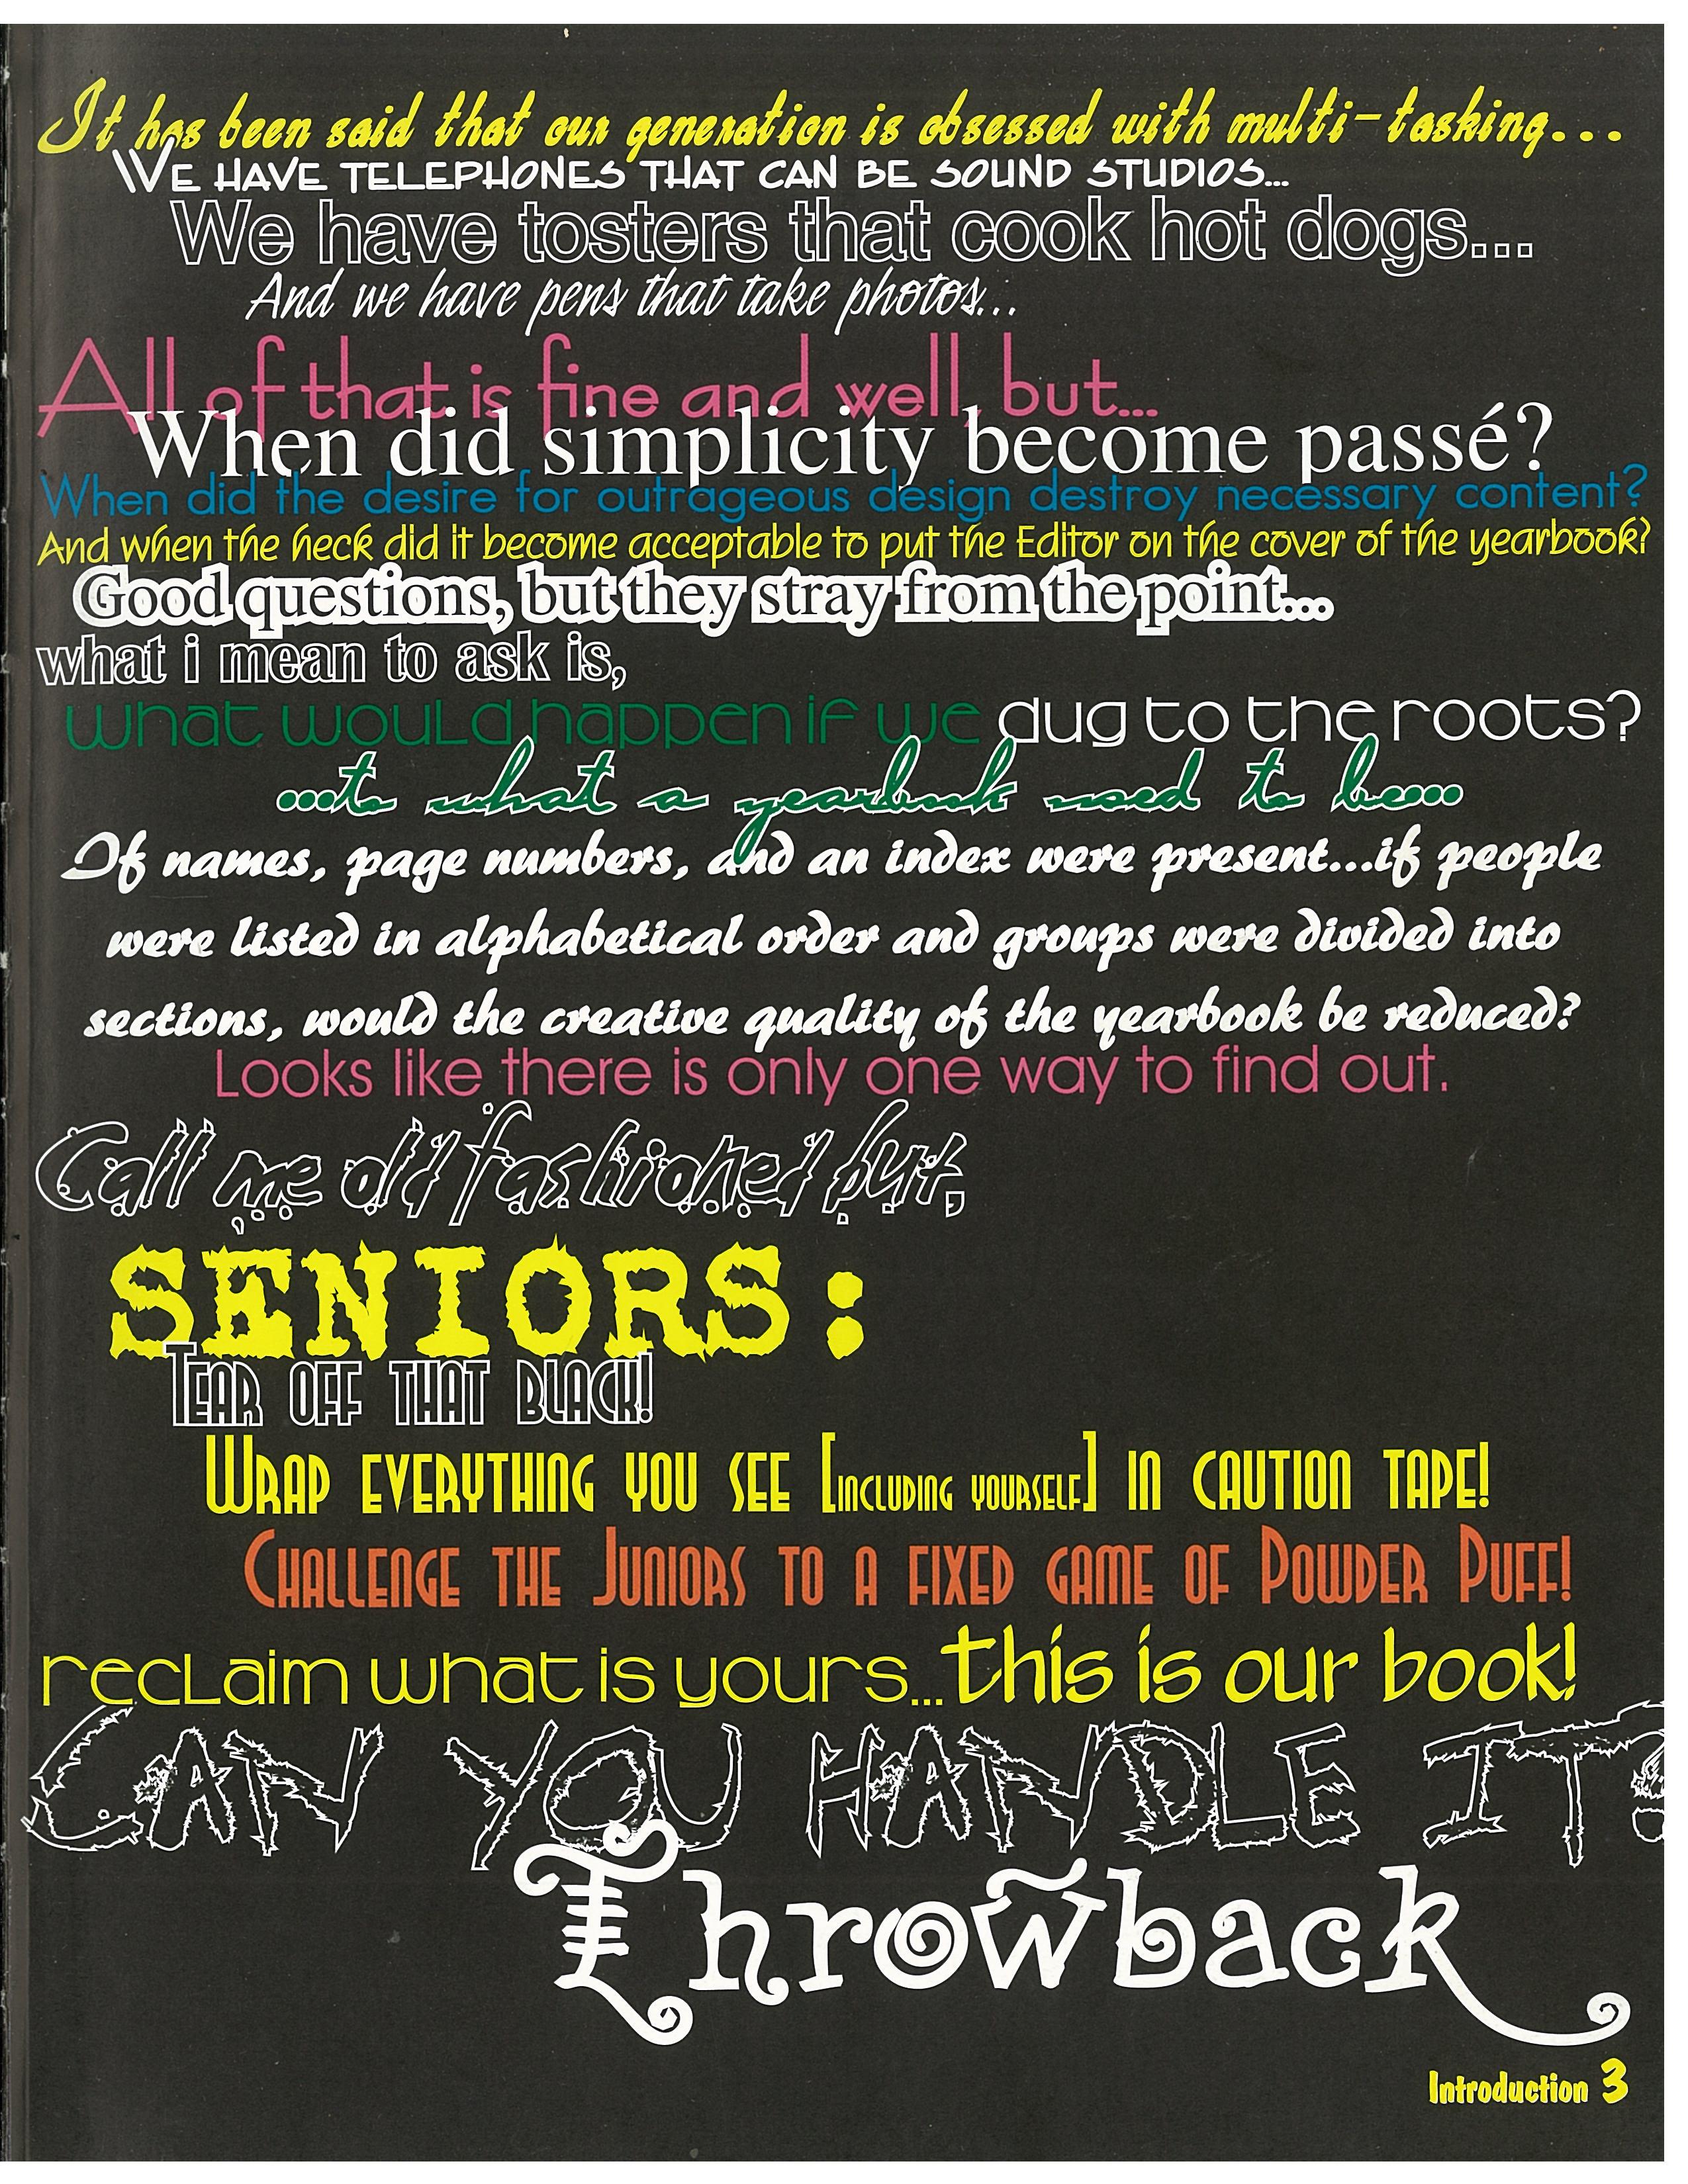 It has been said that our generation is obsessed with multi-tasking...
We have telephones that can be sound studios...
We have tosters that cook hot dogs...
And we have pens that take photos...
All of that is fine and well, but...
When did simplicity become passé?
When did the desire for outrageous design destroy necessary content?
And when the heck did it become acceptable to put the Editor on the cover of the yearbook?
Good questions, but they stray from the point...
what i mean to ask is,
what would happen if we dug to the roots?
...to what a yearbook used to be...
If names, page numbers, and an index were present...if people
were listed in alphabetical order and groups were divided into
sections, would the creative quality of the yearbook be reduced?
Looks like there is only one way to find out.
Call me old fashioned but,
SENIORS:
Tear off that black!
Wrap everything you see [including yourself] in caution tape!
Challenge the Juniors to a fixed game of Powder Puff!
reclaim what is yours...this is our book!
Can you handle it?
Throwback
Introduction 3